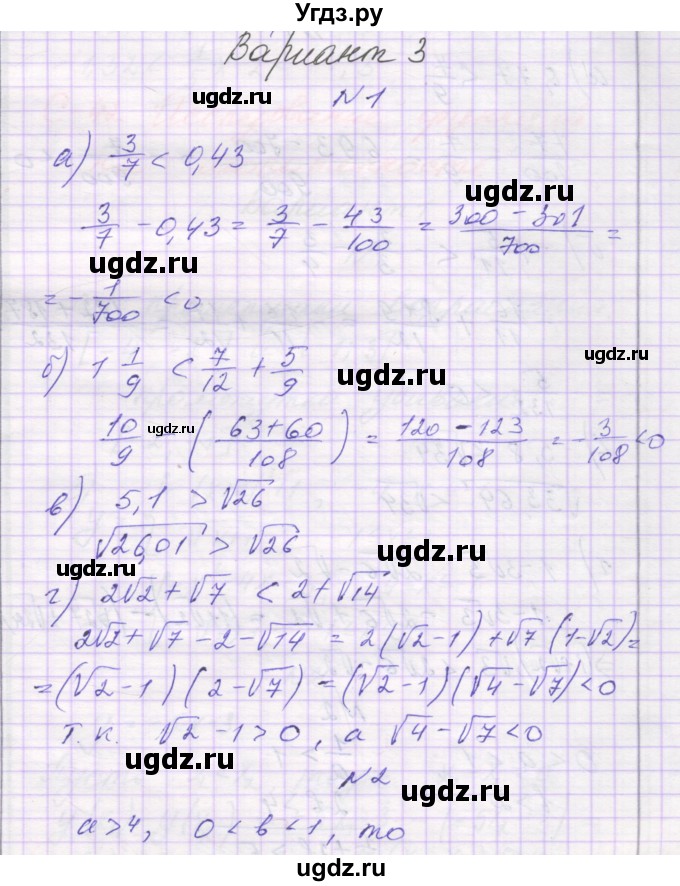 Угдз.ру
Вариант 3
ugdz.ru
N1
а) 3/7 < 0,43
ugdz.ru
3/7 - 0,43 = 3/7 - 43/100 = (300 - 301)/700 =
ugdz.ru
ugdz.ru
= - 1/700 < 0
б) 1 1/9 < 7/12 + 5/9
ugdz.ru
10/9 - ((63+60)/108) = (120 - 123)/108 = - 3/108 < 0
ugdz.ru
ugdz.ru
в) 5,1 > √26
ugdz.ru
√26,01 > √26
ugdz.ru
г) 2√2 + √7 < 2 + √14
2√2 + √7 - 2 - √14 = 2(√2 - 1) + √7 (1 - √2) =
= (√2 - 1)(2 - √7) = (√2 - 1)(√4 - √7) < 0
т.к. √2 - 1 > 0, а √4 - √7 < 0
ugdz.ru
N2
ugdz.ru
a > 4, 0 < b < 1, то
ugdz.ru